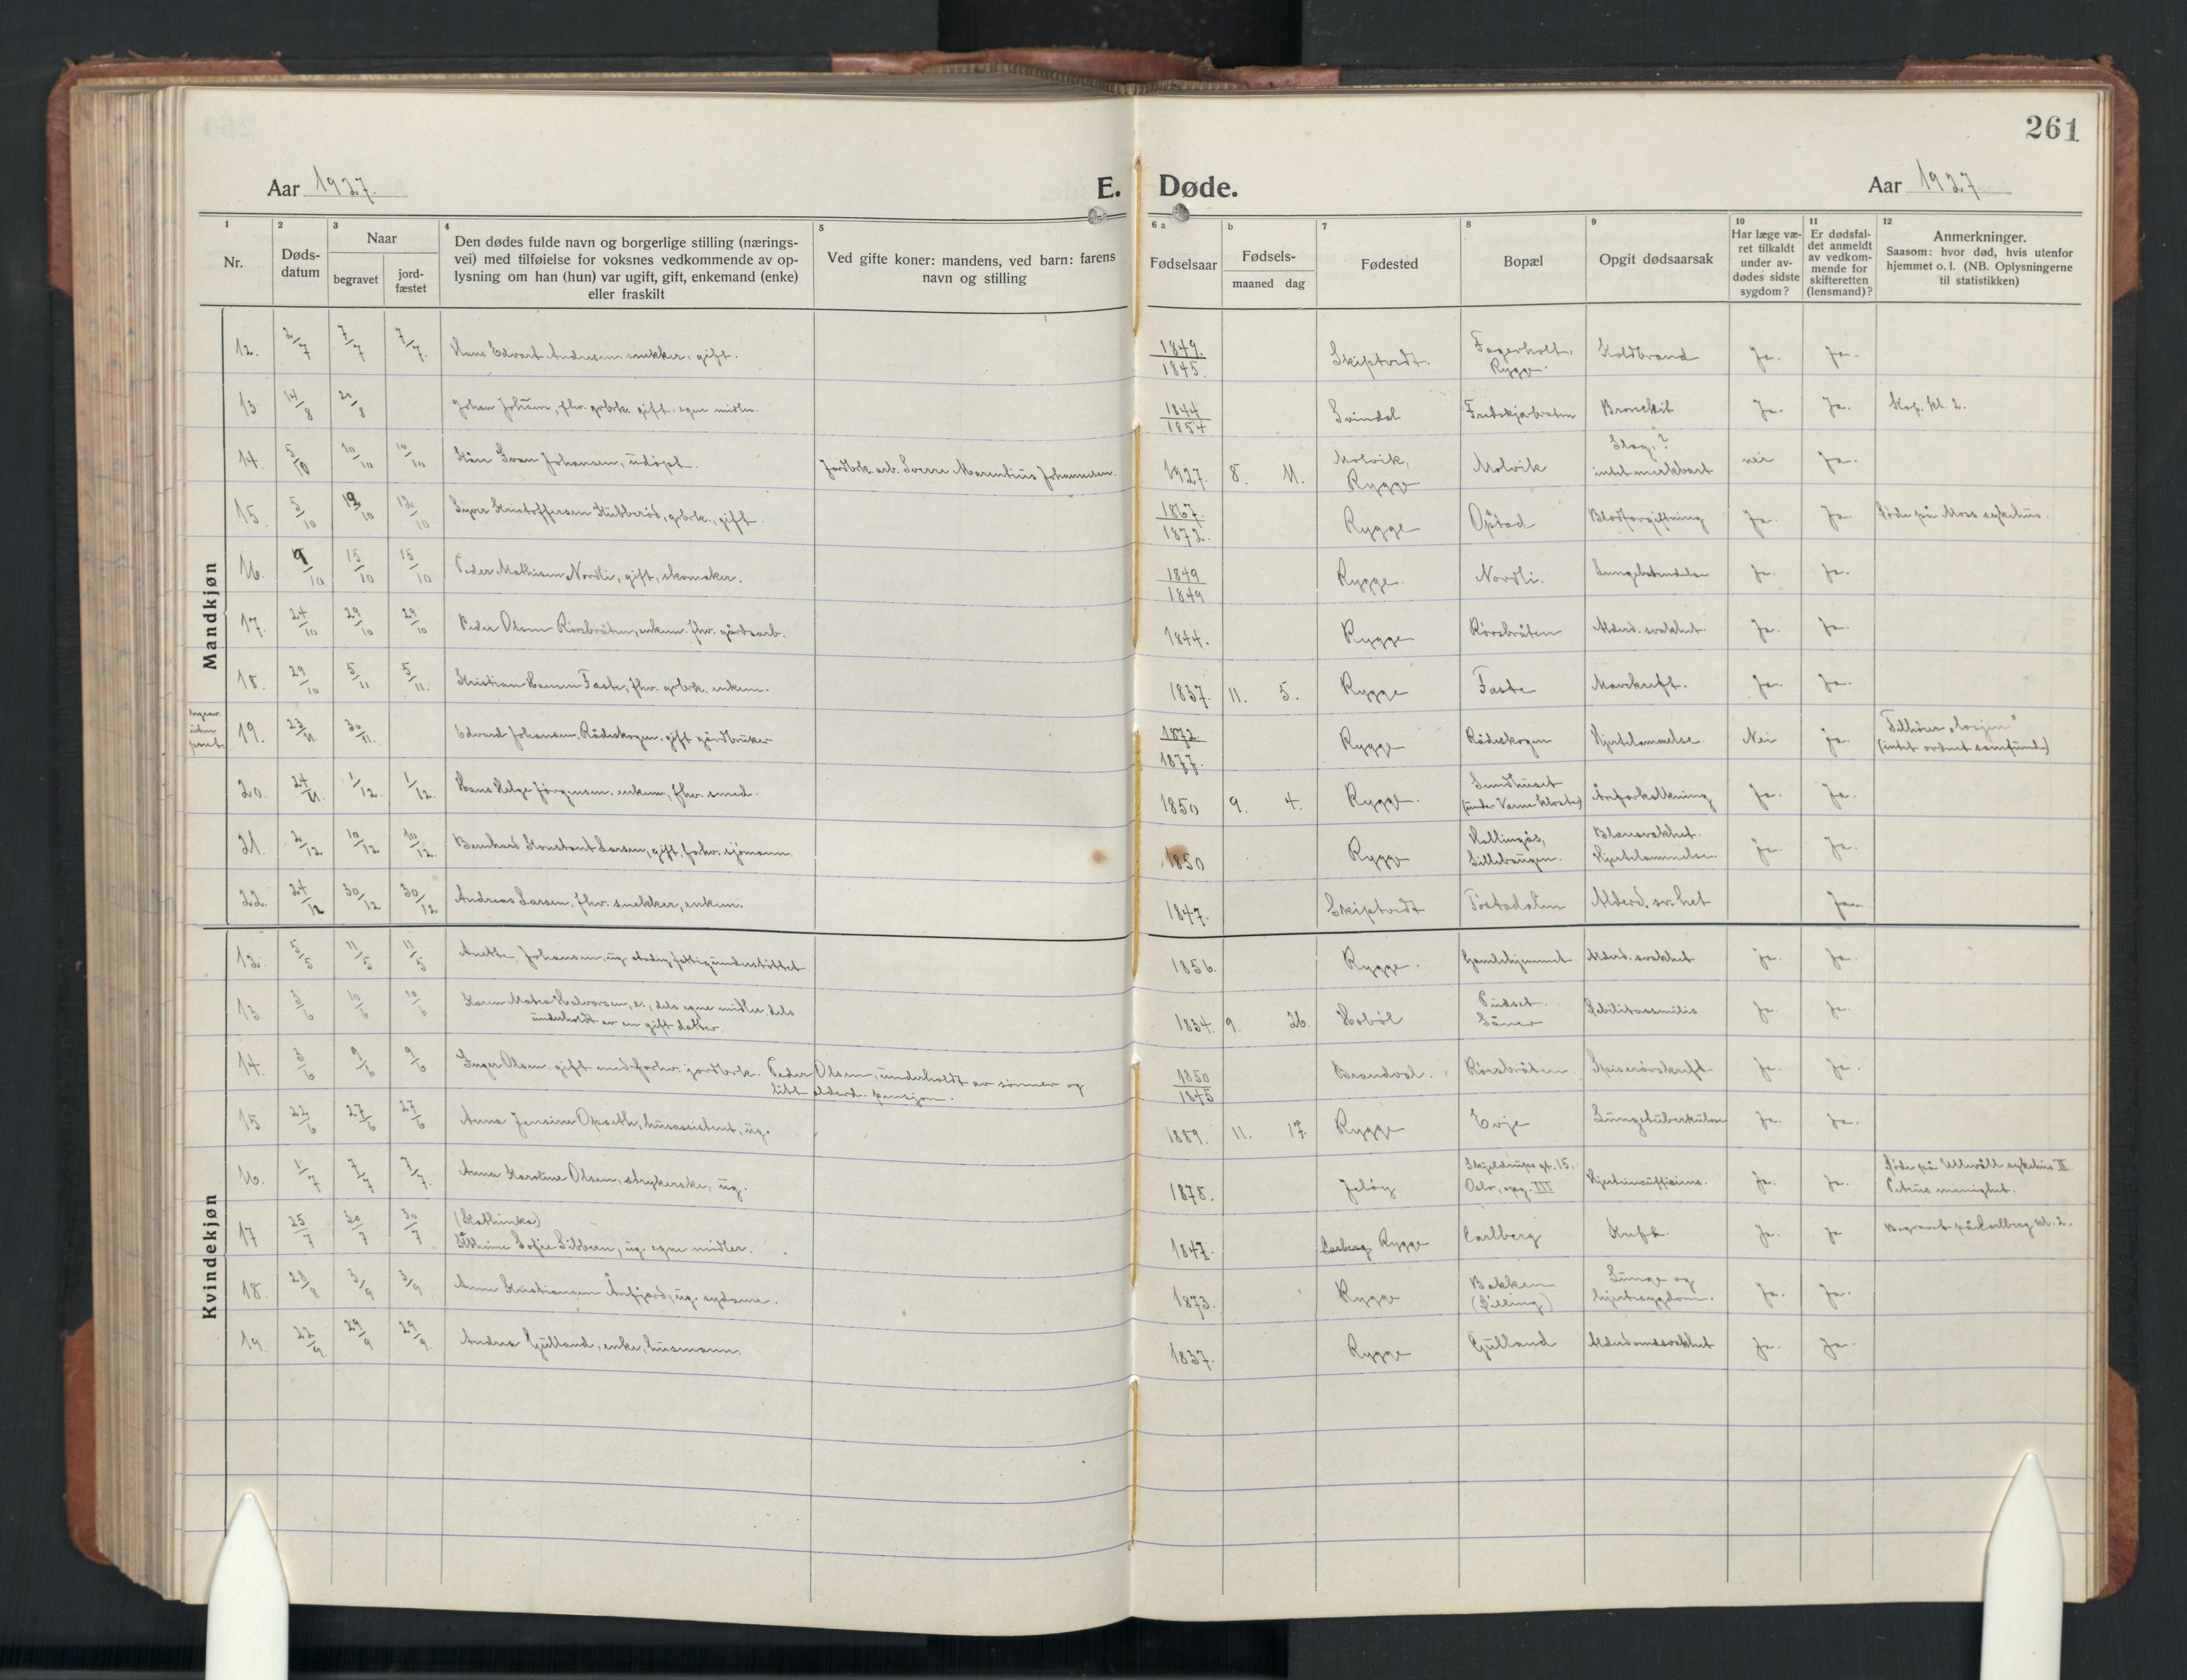 261
Aar 1927. E. Døde. Aar 1927
1 2 3 4 5 6 a b 7 8 9 10 11 12
Nr. | Døds-datum | Naar begravet | jord-fæstet | Den dødes fulde navn og borgerlige stilling (nærings-vei) med tilføielse for voksnes vedkommende av op-lysning om han (hun) var ugift, gift, enkemand (enke) eller fraskilt | Ved gifte koner: mandens, ved barn: farens navn og stilling | Fødselsaar | Fødsels- maaned dag | Fødested | Bopæl | Opgit dødsaarsak | Har læge væ-ret tilkaldt under av-dødes sidste sygdom? | Er dødsfal-det anmeldt av vedkom-mende for skifteretten (lensmand)? | Anmerkninger. Saasom: hvor død, hvis utenfor hjemmet o. l. (NB. Oplysningerne til statistikken)
Mandkjøn
12. 2/7 7/7 7/7. Hans Edvart Andresen, snekker, gift. 1849. 1845. Skiptvedt. Fagerholt, Rygge. Koldbrand Ja. Ja.
13 14/8 20/8 Johan Johsen, fhv. grbrk. gift. egne midler. 1844 1854 Svindal Bronchit Ja. Ja. Kap. kl. 2.
14. 5/10 10/10 10/10 Kåre Ivan Johansen, udøpt. Jordbrk. arb. Sverre Marentius Johannesen. 1927. 8. 11. Molvik, Rygge Molvik Slag? intet merkbart nei Ja.
15. 5/10 12/10 12/10 Syver Kristoffersen Kubberød, grbrk., gift. 1867. 1872. Rygge Opstad Blodforgiftning Ja. Ja Døde på Moss sykehus.
16. 9/10 15/10 15/10 Peder Mathisen Nordli, gift, skomaker. 1849 1849 Rygge. Nordli. Lungebetendelse Ja. Ja.
17. 24/10 29/10 29/10 Peder Olsen Rørsbråten, enkem. fhv. gårdsarb. 1844. Rygge Rørsbråten Alderd. svakhet. Ja. Ja.
18. 29/10 5/11 5/11. Kristian Hansen Faste, fhv. grbrk. enkem. 1837. 11. 5. Rygge Faste Mavekræft. Ja. Ja.
uten prest 19. 23/11. 30/11. Edvard Johansen, Rådeskogen, gift gårdbruker 1872. 1877. Rygge Rådeskogen Hjertelammelse. Nei Ja. Tilhører „losjen" (intet ordnet samfund)
20. 24/11. 1/12. 1/12. Hans Helge Jørgensen, enkem., fhv. smed. 1850 9. 4. Rygge. Sundhuset (under Varne Kloster) Åreforkalkning Ja. Ja.
21. 2/12 10/12 10/12. Bernhard Konstant Larsen, gift, forhv. sjømann. 1850 Rygge Kallingås, Blæresvakhet. Hjertelammelse. Ja. Ja.
22. 24/12 30/12 30/12 Andreas Larsen, fhv. snekker, enkem. 1847. Skiptvedt Tostadalen Alderd. sv.het Ja.
Kvindekjøn
12. 5/5 11/5 11/5 Anette Johansen, ug. stadig fattigunderstøttet 1856. Rygge. Gamlehjemmet Alderd. svakhet Ja. Ja.
13. 3/6 10/6 10/6 Karen Matea Halvorsen, e., dels egne midler, dels underholdt av en gift datter. 1834. 9. 26. Hobøl Pudset Såner Debilitas senilis Ja. Ja.
14. 3/6 9/6 9/6 Inger Olsen. gift med forhv. jordbrk. Peder Olsen, underholdt av sønner og litt alderd. pensjon. 1850 1845 Brandval. Rørsbråten Spiserørskræft Ja. Ja.
15 22/6 27/6 27/6 Anna Jensine Opseth, husassistent, ug. 1889. 11. 17. Rygge Evje Lungetuberkulose Ja. Ja.
16. 1/7 7/7 7/7. Anna Karoline Olsen, strykerske, ug. 1878. Jeløy Skjeldrups gt. 15. Oslo, opg. III Hjerteinsufficiens. Ja. Ja. Døde på Ullevåll sykehus II Petrus menighet.
17 25/7 30/7 30/7 (Kathinka) Sofie Sibbern, ug. egne midler. 1847. Carlberg Rygge Carlberg Kreft Ja. Ja Begravet på Carlberg kl. 2.
18. 28/8 3/9 3/9 Anne Kristiansen Årefjord, ug. sydame. 1873. Rygge Bakken Lunge og hjertesygdom. Ja. Ja.
19. 22/9. 29/9 29/9. Andrea Gulland, enke, husmann. 1837. Rygge Gulland Alderdomssvakhet Ja. Ja.